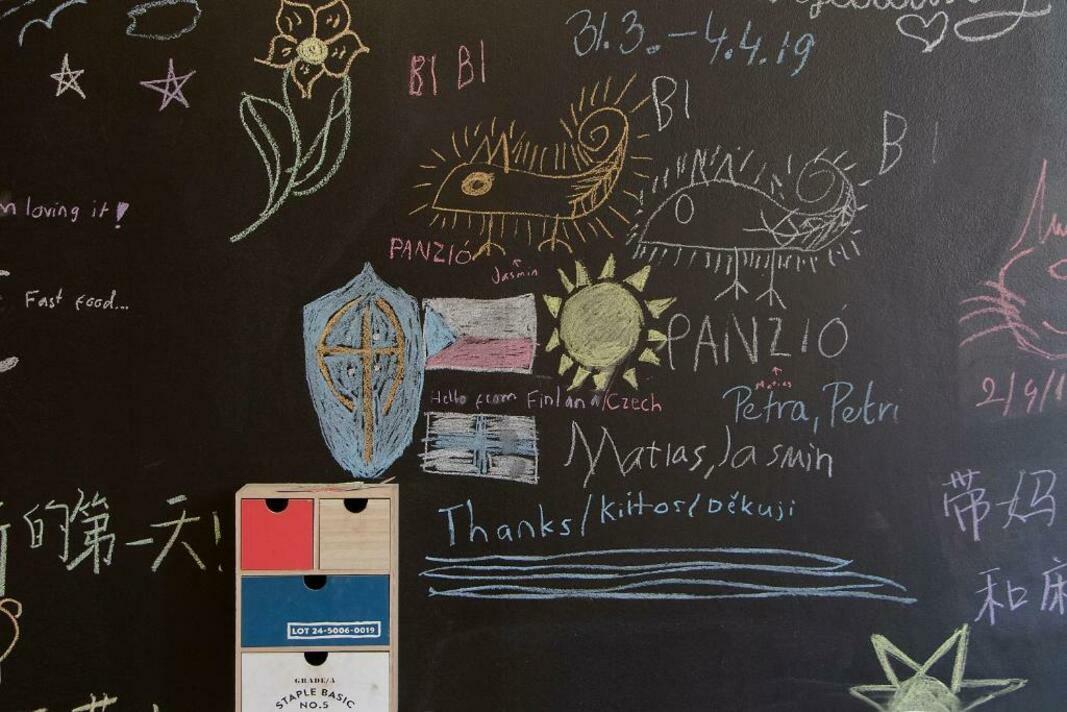 31.3.-4.4.19
BI BI
BI
BI
m loving it!
PANZIÓ
Jasmin
Fast food...
PANZIÓ
Matias
Hello from Finland/Czech
Petra, Petri
2/4/1
Matias, Jasmin
Thanks/Kiitos/Děkuji
的第一天!
带妈
和床
LOT 24-5006-0019
GRADE/A
STAPLE BASIC
NO.5